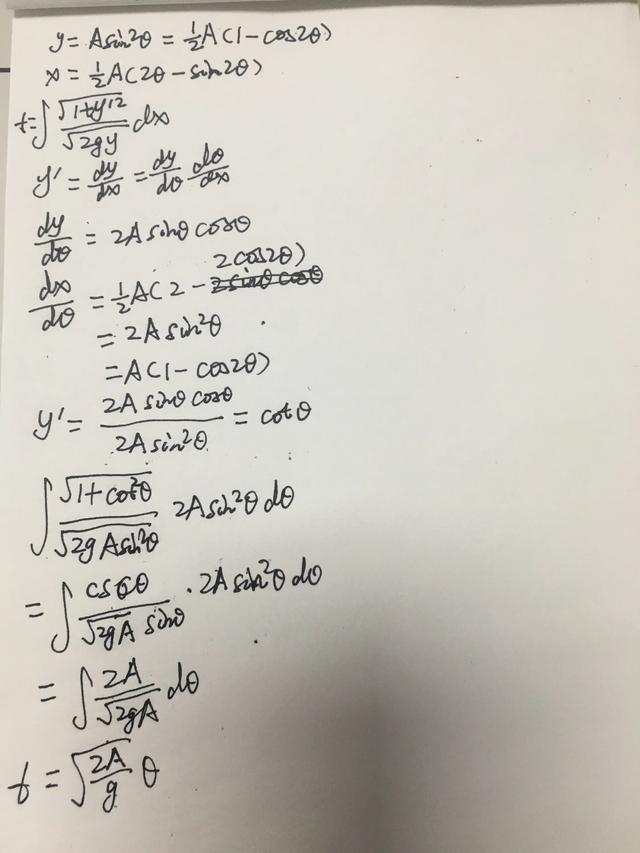 y = A sin²θ = ½A(1 − cos2θ)
x = ½A(2θ − sin2θ)
t = ∫ √(1+y'²) / √(2gy) dx
y' = dy/dx = dy/dθ dθ/dx
dy/dθ = 2A sinθ cosθ
dx/dθ = ½A(2 − 2cos2θ)
= 2A sin²θ
= A(1 − cos2θ)
y' = 2A sinθ cosθ / 2A sin²θ = cotθ
∫ √(1+cot²θ) / √(2gA sin²θ) 2A sin²θ dθ
= ∫ cscθ / √(2gA) sinθ · 2A sin²θ dθ
= ∫ 2A / √(2gA) dθ
t = √(2A/g) θ